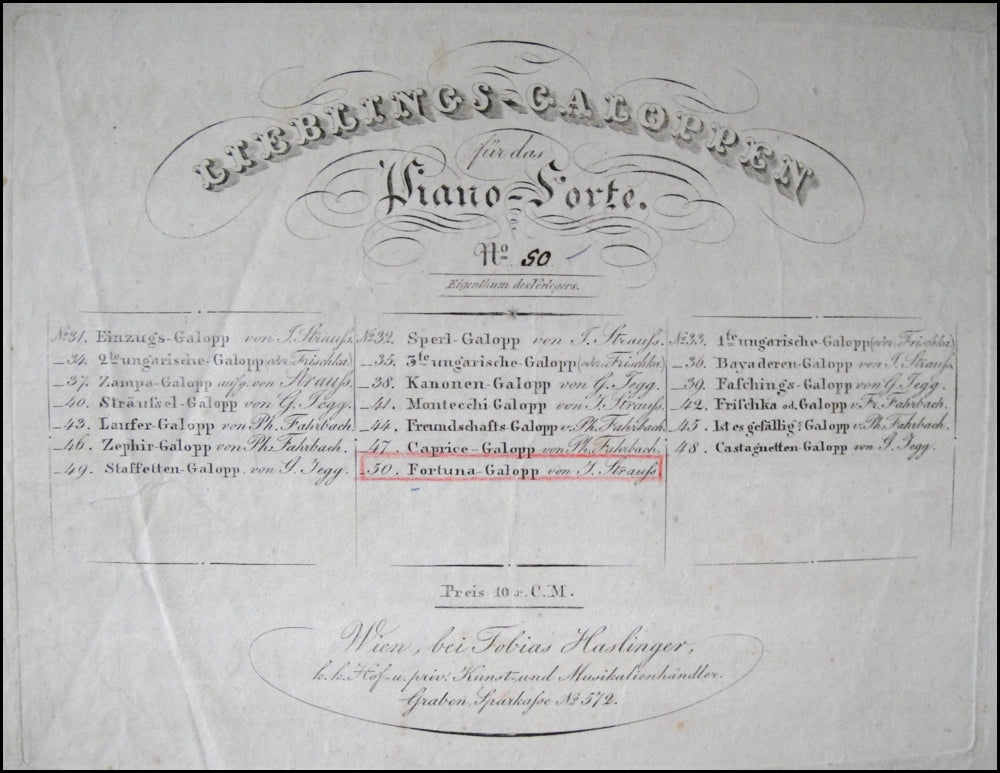 LIEBLINGS-GALOPPEN
für das
Piano-Forte.
No 50
Eigenthum des Verlegers.
No 31. Einzugs-Galopp von J. Strauss. No 32. Sperl-Galopp von J. Strauss. No 33. 1te ungarische-Galopp (oder Frischka).
_34. 2te ungarische-Galopp (oder Frischka). _35. 3te ungarische-Galopp (oder Frischka). _36. Bayaderen-Galopp von J. Strauss.
_37. Zampa-Galopp aufg. von Strauss. _38. Kanonen-Galopp von G. Jegg. _39. Faschings-Galopp von G. Jegg.
_40. Sträussel-Galopp von G. Jegg. _41. Montecchi-Galopp von J. Strauss. _42. Frischka od. Galopp v. Fr. Fahrbach.
_43. Laufer-Galopp von Ph. Fahrbach. _44. Freundschafts-Galopp v. Ph. Fahrbach. _45. Ist es gefällig? Galopp v. Ph. Fahrbach.
_46. Zephir-Galopp von Ph. Fahrbach. _47. Caprice-Galopp von Ph. Fahrbach. _48. Castagnetten-Galopp von G. Jegg.
_49. Staffetten-Galopp von G. Jegg. _50. Fortuna-Galopp von J. Strauss
Preis 10 x. C.M.
Wien, bei Tobias Haslinger,
k.k. Hof- u. priv. Kunst- und Musikalienhändler.
Graben, Sparkasse No 572.